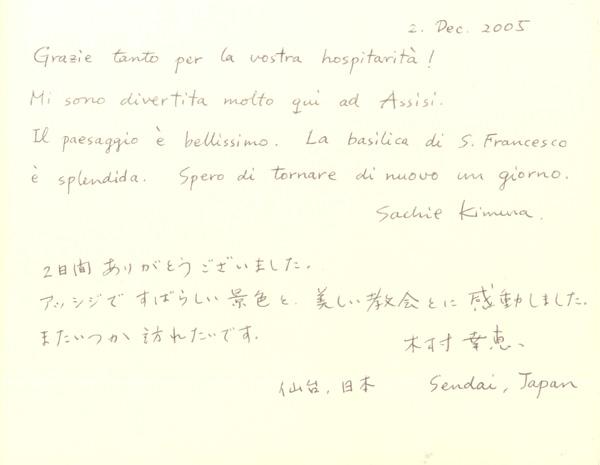 2. Dec. 2005
Grazie tanto per la vostra hospitarità!
Mi sono divertita molto qui ad Assisi.
Il paesaggio è bellissimo. La basilica di S. Francesco
è splendida. Spero di tornare di nuovo un giorno.
Sachie Kimura.
2日間 ありがとうございました。
アッシジで すばらしい 景色と、美しい教会とに 感動しました。
またいつか 訪れたいです。 木村 幸恵、
仙台, 日本 Sendai, Japan